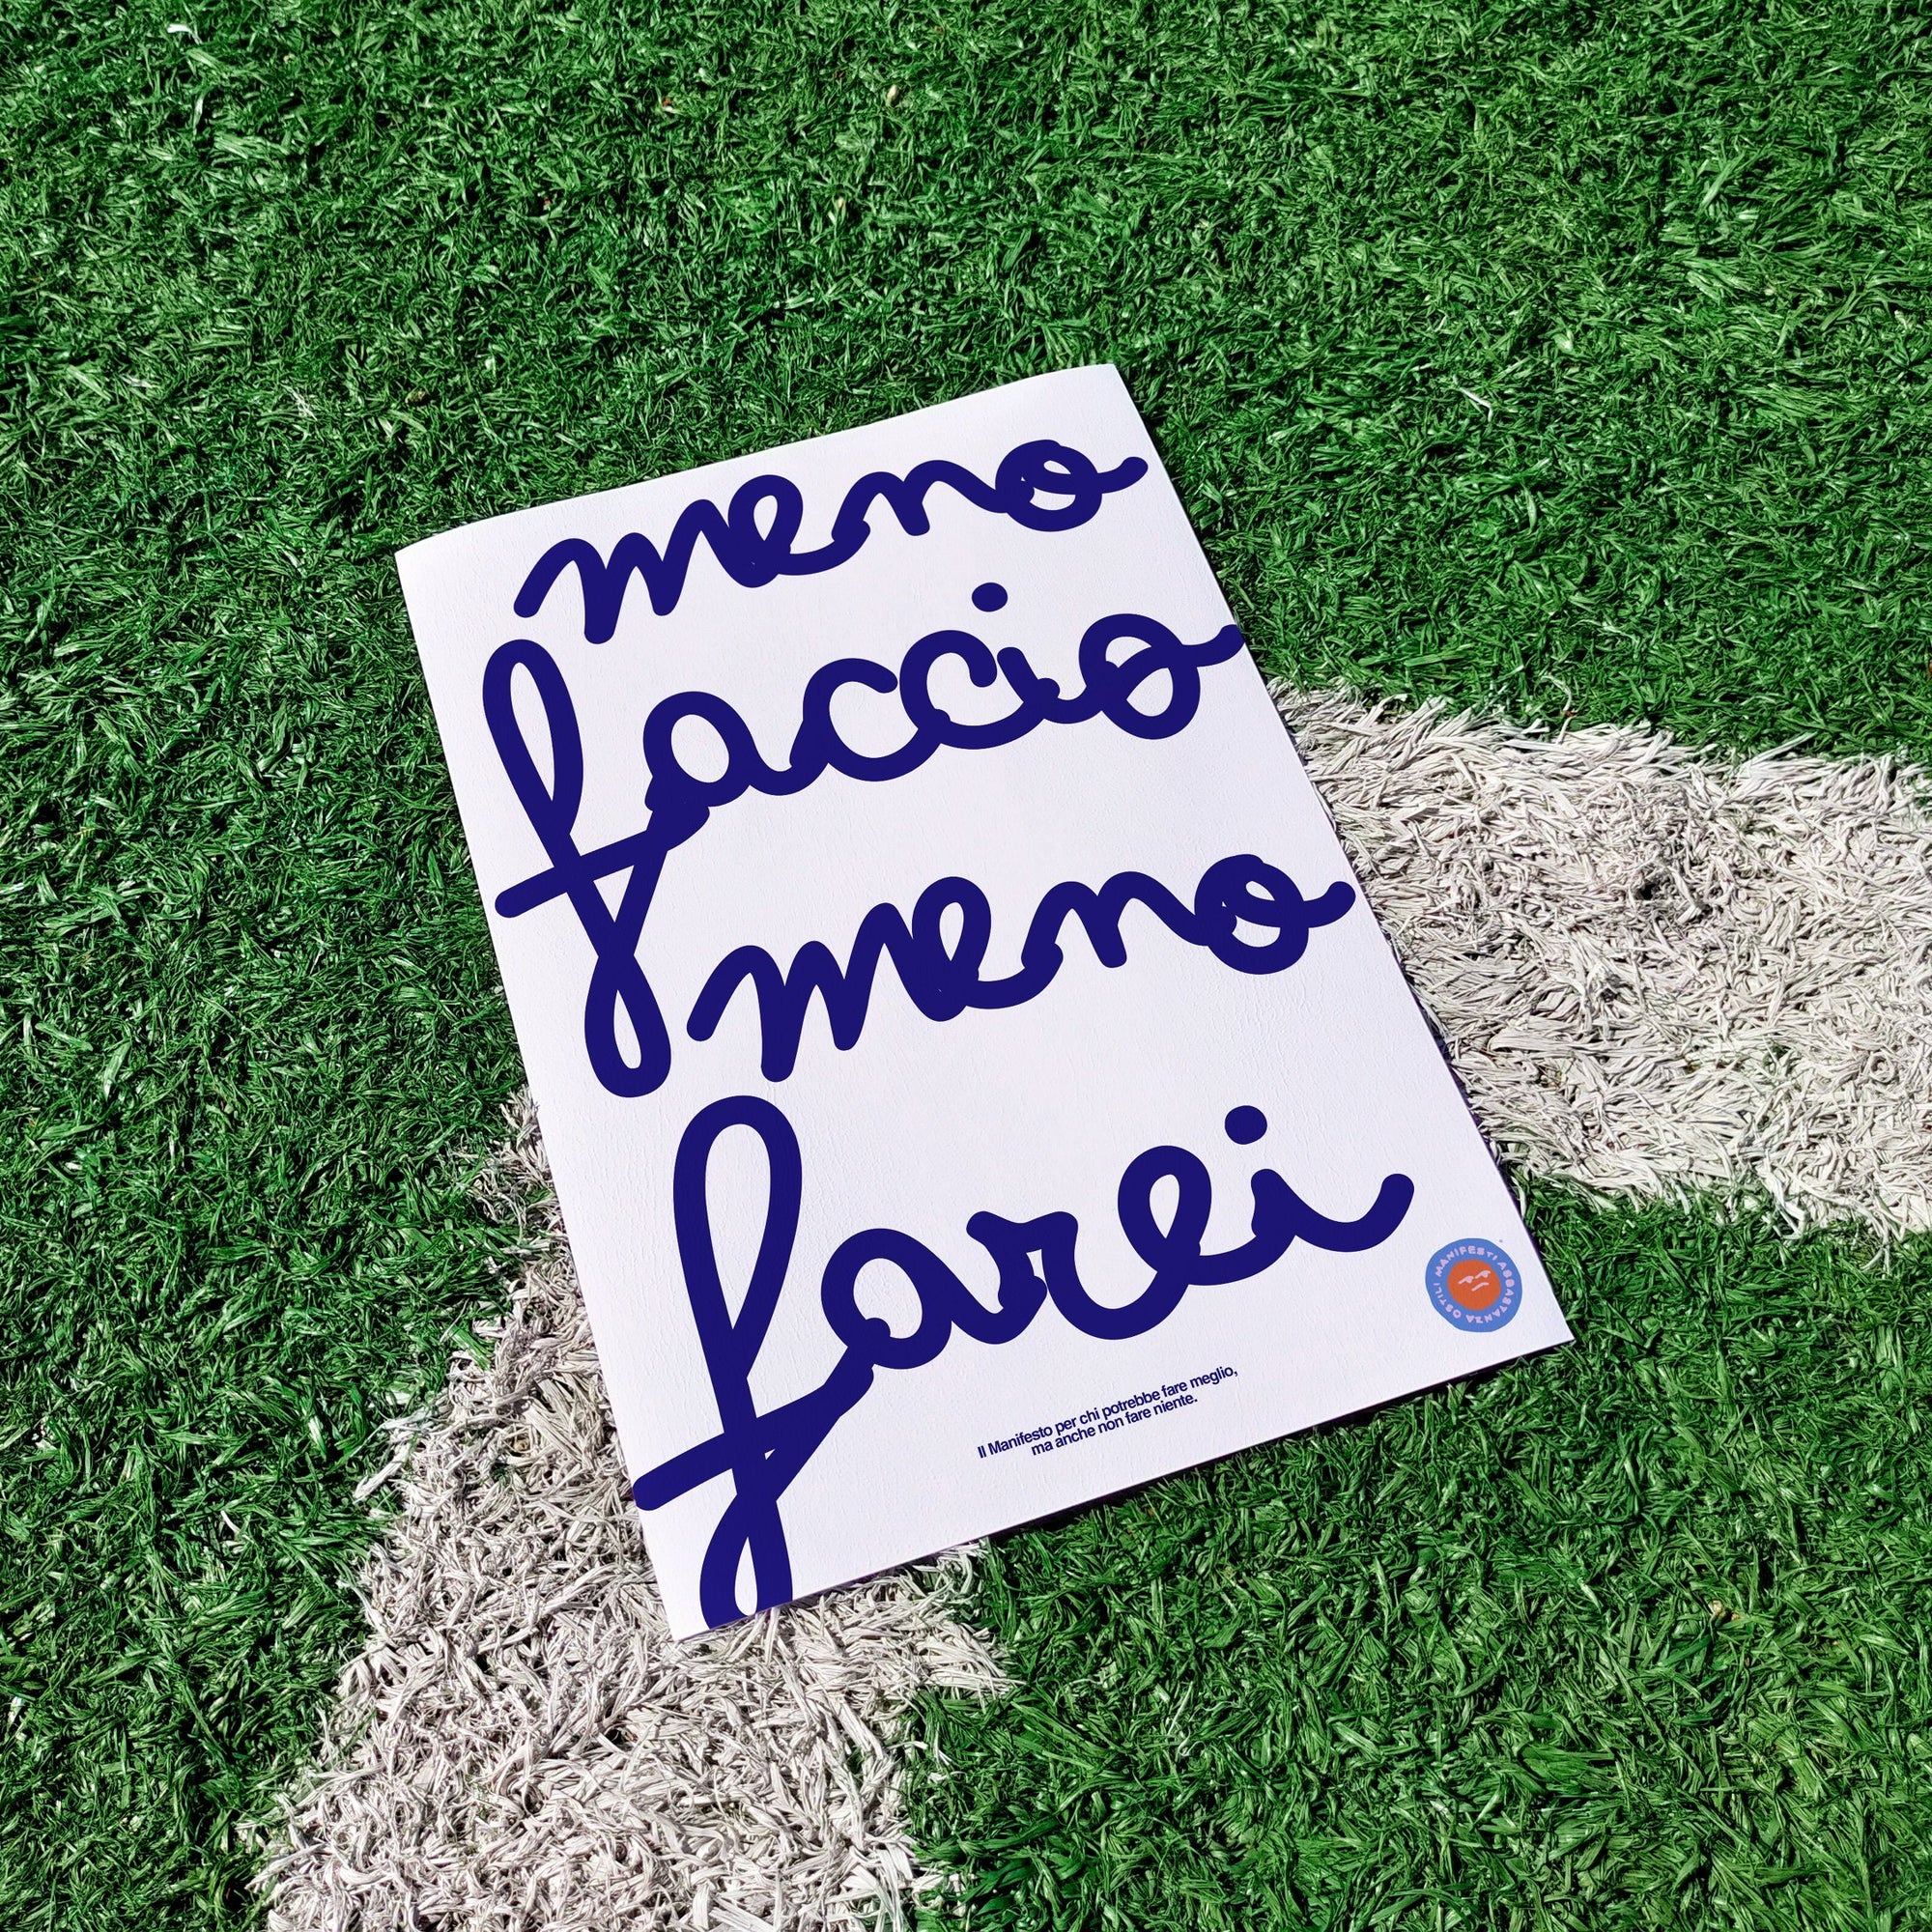 meno
faccio
meno
farei
Il Manifesto per chi potrebbe fare meglio,
ma anche non fare niente.
MANIFESTI ABBASTANZA OSTILI